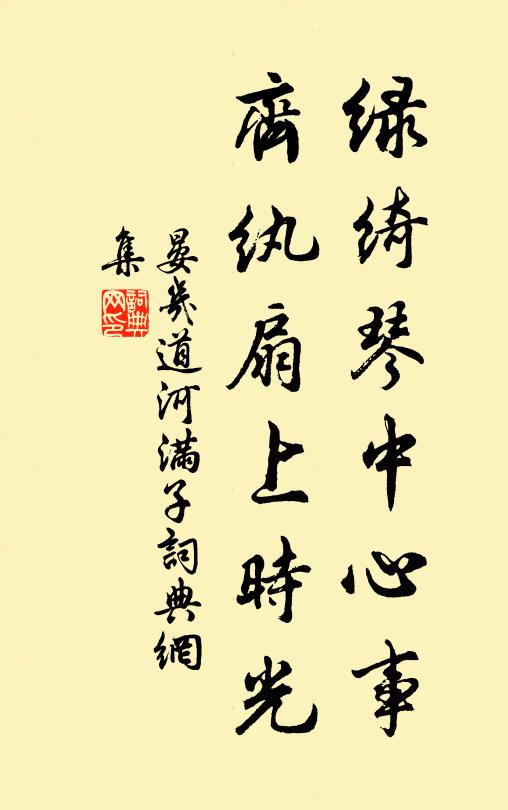 绿绮琴中心事
齊紈扇上時光
晏幾道河满子詞典網
集
詞典
网印